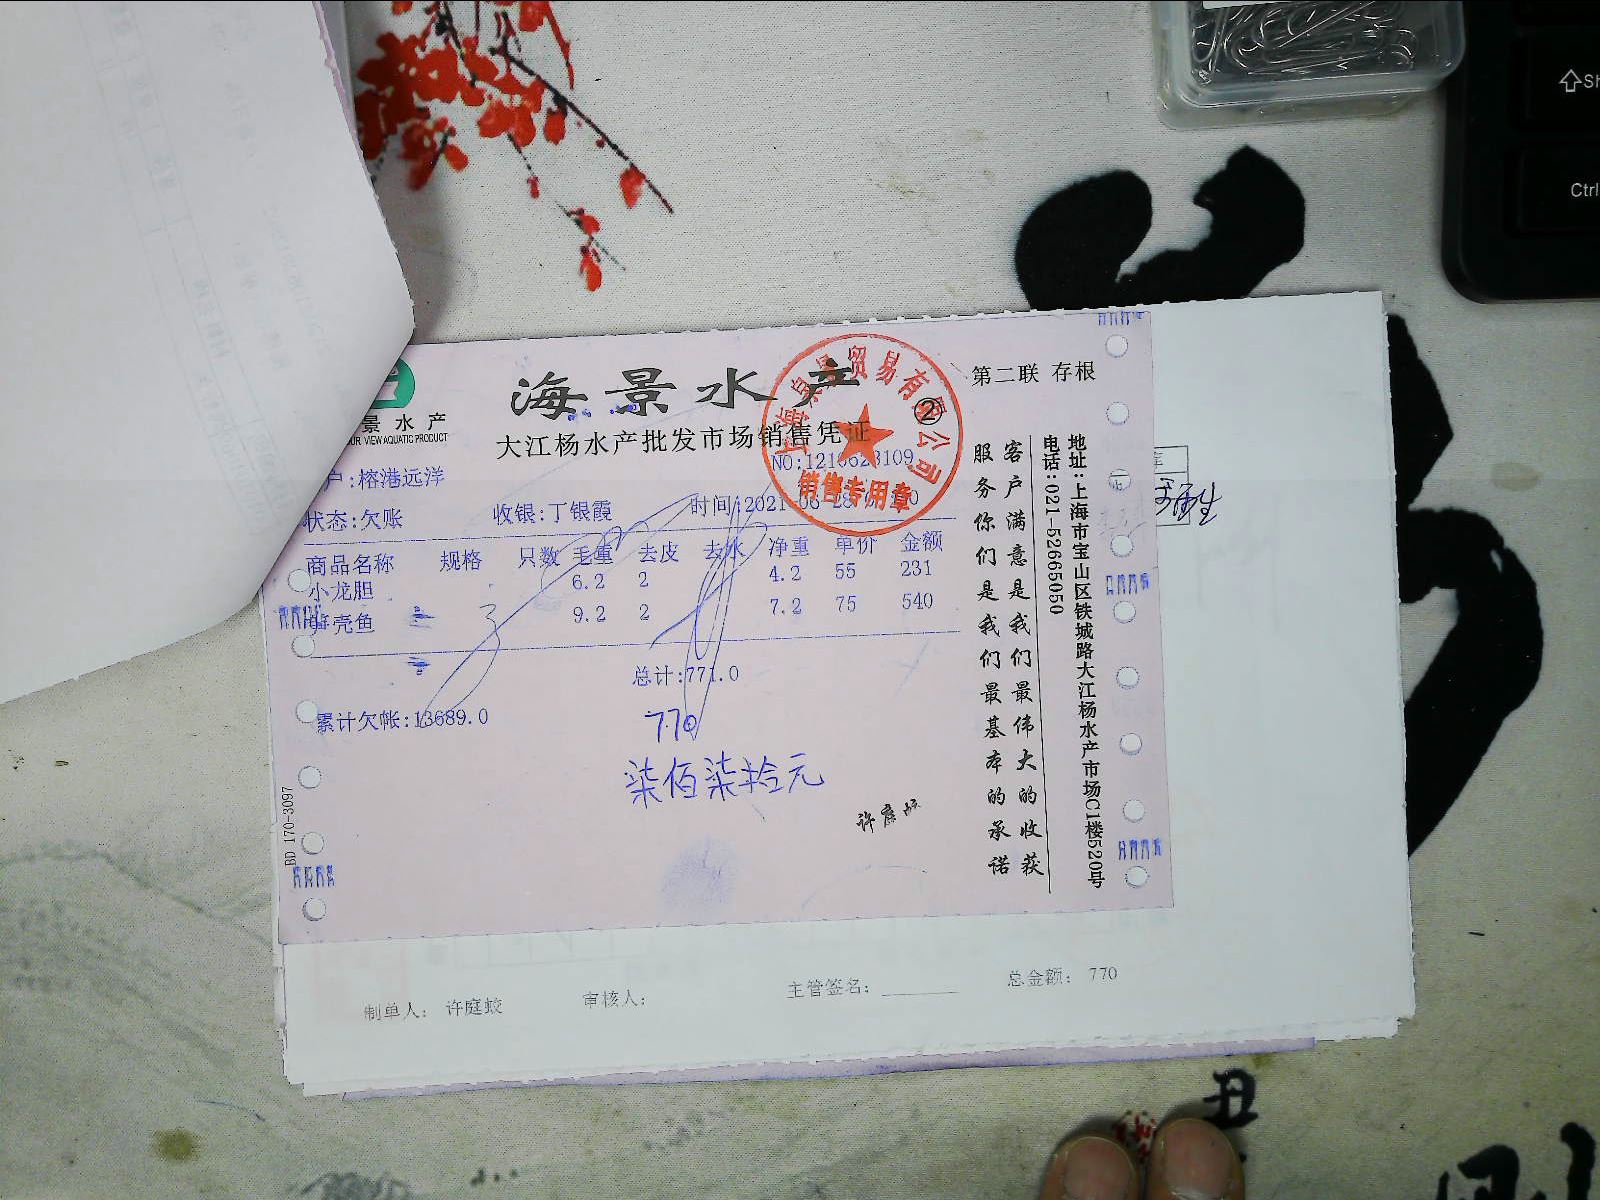 海景水产
第二联 存根
②
景水产
VIEW AQUATIC PRODUCT
大江杨水产批发市场销售凭证
NO:1210628109
户:榕港远洋
状态:欠账 收银:丁银霞 时间:2021-06-28
贸易有限公司
销售专用章
商品名称 规格 只数 毛重 去皮 去水 净重 单价 金额
小龙胆 6.2 2 4.2 55 231
壳鱼 9.2 2 7.2 75 540
总计:771.0
累计欠帐:13689.0
770
柒佰柒拾元
许庭蛟
客户满意是我们最伟大的收获
服务你们是我们最基本的承诺
地址:上海市宝山区铁城路大江杨水产市场C1楼520号
电话:021-52665050
BD 170-3097
制单人: 许庭蛟 审核人: 主管签名: 总金额: 770
Ctrl
丑